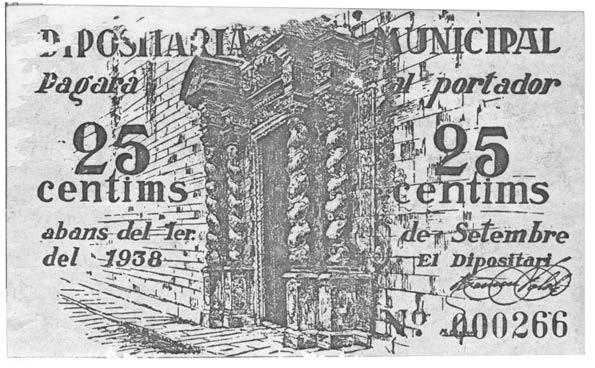 DIPOSITARIA MUNICIPAL
Pagarà al portador
25 25
centims centims
abans del 1er. de Setembre
del 1938 El Dipositari
Nº. 000266